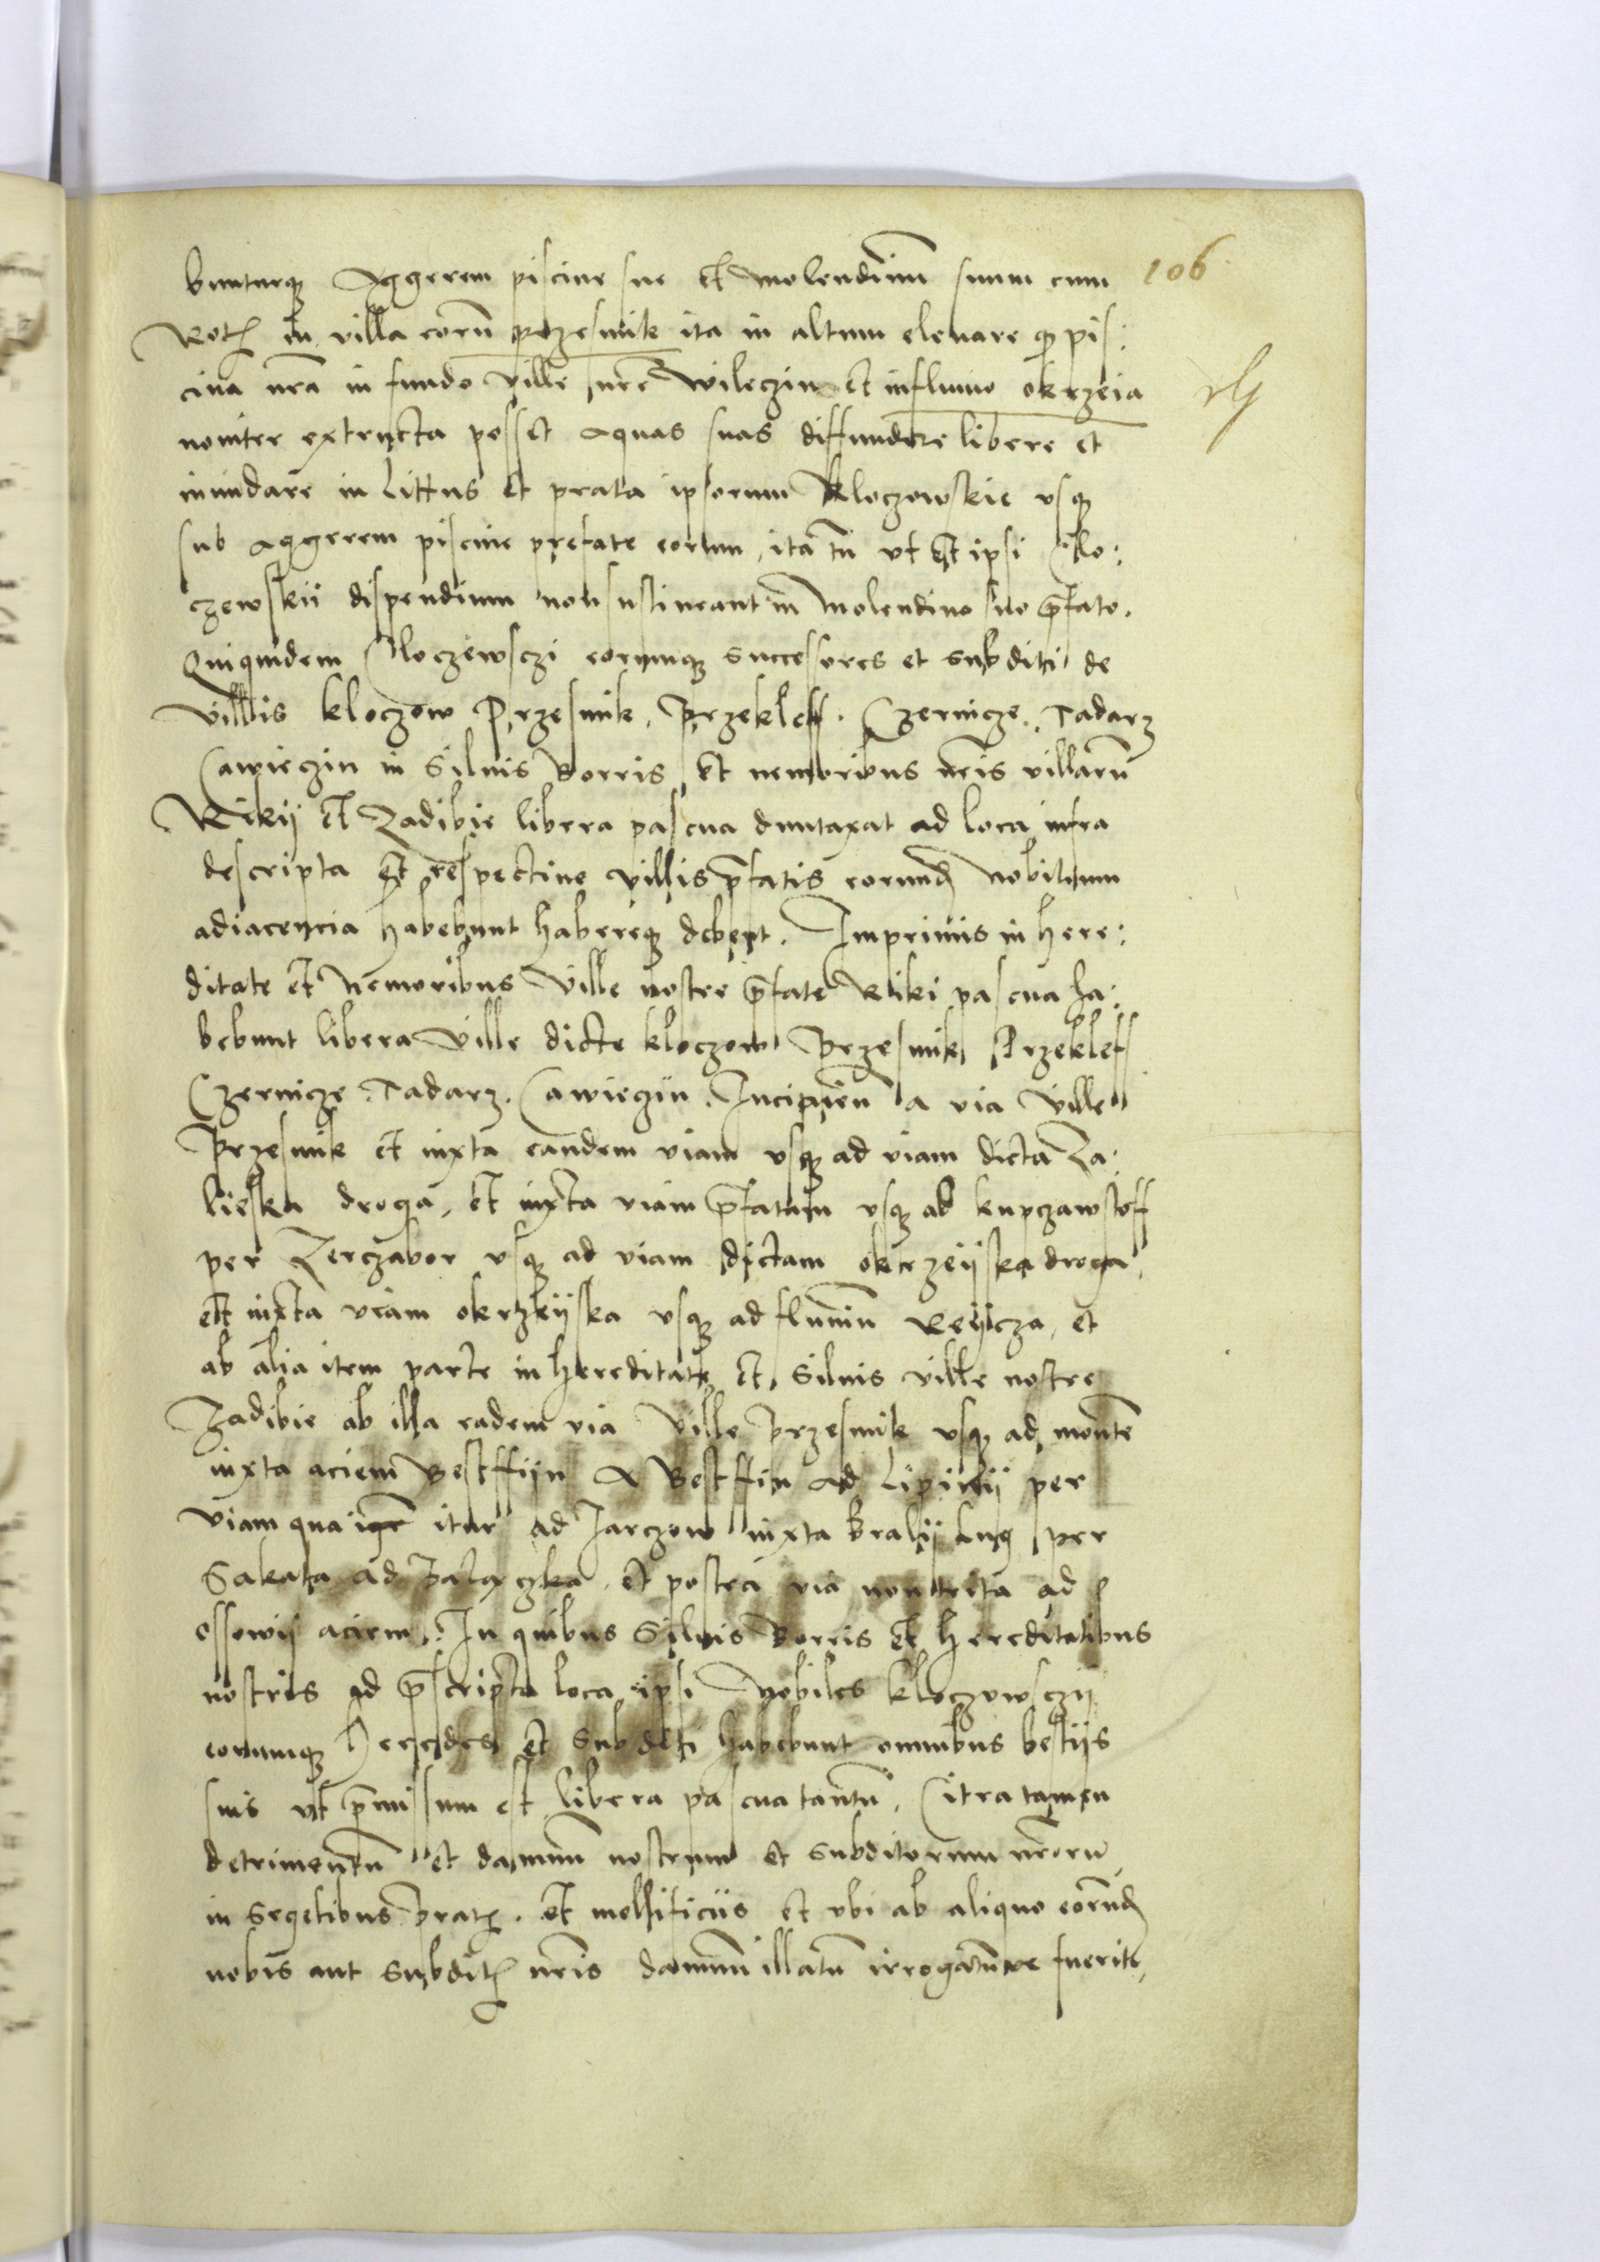 bunturq Aggerem piscine sue et molendinũ suum cum 106
Rotis in villa eorũ przesmik ita in altum elevare q pis:
cina nrã in fundo ville nrẽ Wileczin et influuio okrzeia
noviter extructa posset aquas suas diffundere libere et
inundare in Littus et prata ipsorum Kloczowskie vsq
sub Aggerem piscine prefate eorum, ita tñ vt et ipsi Clo:
czewskii dispendium non sustineant in molendino suo p̃fato.
Quiquidem Cloczewsczi eorumq successores et subditi de
villis kloczow Przesmik, Przekleff. Czernicze. Tadarz
Cawieczin in Siluis Borris et nemoribus nr̃is villarũ
Rikij et Zadibie libera pascua duntaxat ad loca infra
descripta et respective villis p̃fatis eorund Nobilium
adiacencia habebunt habereq debent. Imprimis in here:
ditate et Nemoribus Ville nostre p̃fate Riki pascua ha:
bebunt libera Ville dicte kloczow Przesmik Przekleff
Czernicze. Tadarz. Cawieczin. Incipien̄ a via Ville
Przesmik et iuxta eandem viam vsq ad viam dictã Za:
lieska droga, et iuxta viam p̃fatam vsq ad kupczawstoff
per Zerczabor vsq ad viam dictam okrzeijska droga
et iuxta viam okrzeijska vsq ad fluuiũ Reijcza, et
ab alia item parte in hereditate et Siluis ville nostre
Zadibie ab illa eadem via Ville Przesmik vsq ad montẽ
iuxta aciem Bestffijn A Bestffin ad Lipinij per
viam qua itur ad Jarczow iuxta kralij Lug per
Sakata ad et postea via non trita ad
ossowij aciem. In quibus Siluis Borris et hereditatibus
nostris ad p̃scripta loca ipsi Nobiles kloczowsczij
eorumq Heredes et Subditi habebunt omnibus bestijs
suis vt p̃missum est libera pascua tantũ. Citra tamen
detrimentũ et damnũ nostrum et subditorum nr̃orũ
in Segetibus pratis. et mellificiis et vbi ab aliquo eorund
nobis aut Subditis nr̃is damnũ illatũ irrogatũve fuerit,